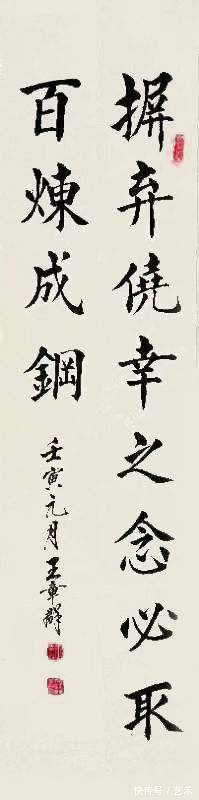 摒弃僥幸之念必取
百煉成鋼
壬寅元月王章群
快传号/艺禾